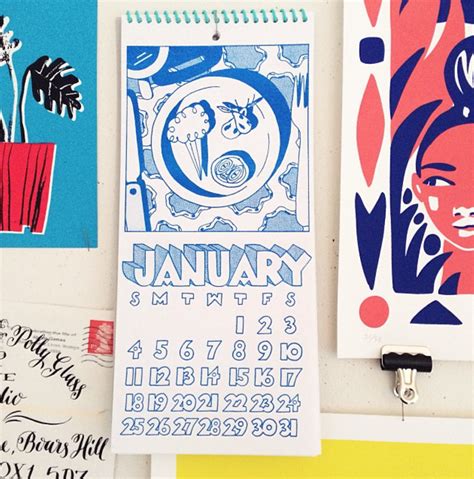 JANUARY
S M T W T F S
1 2 3
4 5 6 7 8 9 10
11 12 13 14 15 16 17
18 19 20 21 22 23 24
25 26 27 28 29 30 31
Polly Glass
Bours Hill
OX1 5DZ